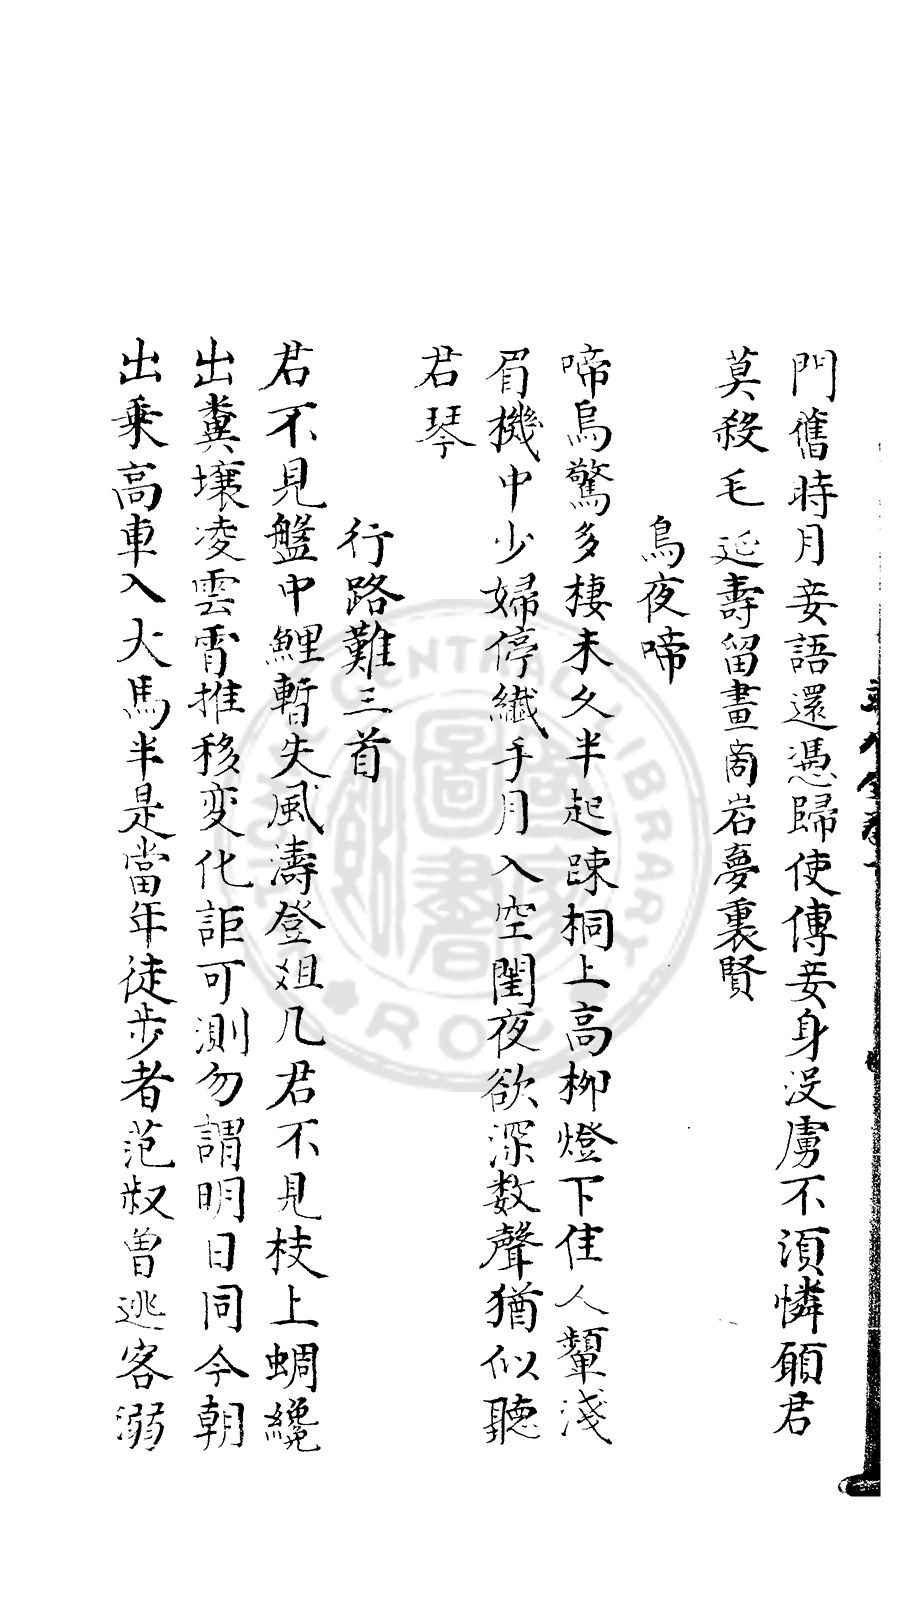 門舊時月妾語還憑歸使傳妾身没虜不須憐願君
莫殺毛延壽留畫商岩夢裏賢
烏夜啼
啼烏驚多棲未久半起踈桐上高柳燈下佳人顰淺
眉機中少婦停纎手月入空閨夜欲深数聲猶似聽
君琴
行路難三首
君不見盤中鯉暫失風濤登俎几君不見枝上蜩纔
出糞壤凌雲霄推移変化詎可測勿謂明日同今朝
出乗高車入大馬半是當年徒步者范叔曾逃客溺
NATIONAL CENTRAL LIBRARY
R.O.C.
國家圖書館